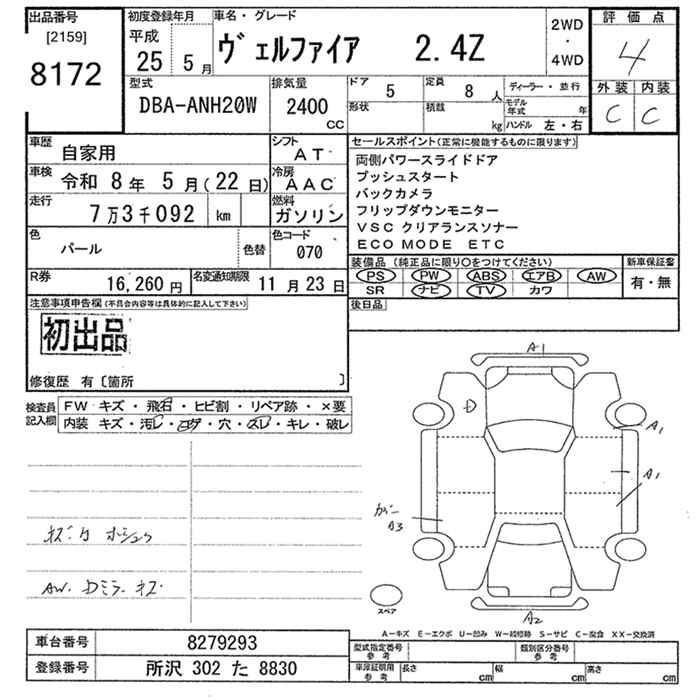 出品番号
[2159]
8172
初度登録年月
平成
25 5月
車名・グレード
ヴェルファイア 2.4Z
2WD
・
4WD
評価点
4
外装 内装
C C
型式
DBA-ANH20W
排気量
2400
CC
ドア
5
定員
8人
ディーラー・並行
形状
積載
kg
モデル年式 年
ハンドル 左・右
車歴
自家用
シフト
AT
車検
令和 8年 5月(22日)
冷房
AAC
走行
7万3千092 km
燃料
ガソリン
色
パール
色替
色コード
070
R券
16,260円
名変通知期限
11月23日
セールスポイント(正常に機能するものに限ります)
両側パワースライドドア
プッシュスタート
バックカメラ
フリップダウンモニター
VSC クリアランスソナー
ECO MODE ETC
装備品(純正品に限り○をつけてください)
PS PW ABS エアB AW
SR ナビ TV カワ
新車保証書
有・無
後日品
注意事項申告欄(不具合内容等は具体的に記入して下さい)
初出品
修復歴 有〔箇所 〕
検査員
記入欄
FW キズ・飛石・ヒビ割・リペア跡・×要
内装 キズ・汚レ・コゲ・穴・スレ・キレ・破レ
AW.Dミラーキズ
A1
A1
A1
カバー
A3
A2
スペア
A-キズ E-エクボ U-凹み W-補修跡 S-サビ C-腐食 XX-交換済
車台番号
8279293
登録番号
所沢 302 た 8830
型式指定番号
参考
類別区分番号
参考
車庫証明用
参考
長さ cm
幅 cm
高さ cm